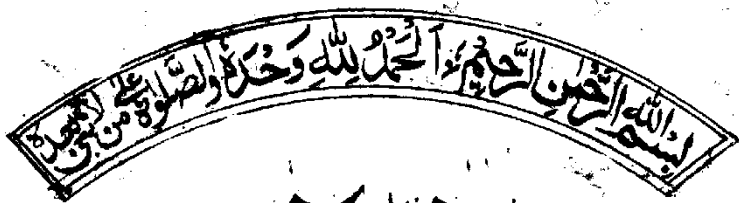 بِسْمِ اللهِ الرَّحْمٰنِ الرَّحِيْمِ اَلْحَمْدُ لِلّٰهِ وَحْدَهٗ وَالصَّلٰوةُ عَلٰى مَنْ لَّا نَبِىَّ بَعْدَهٗ